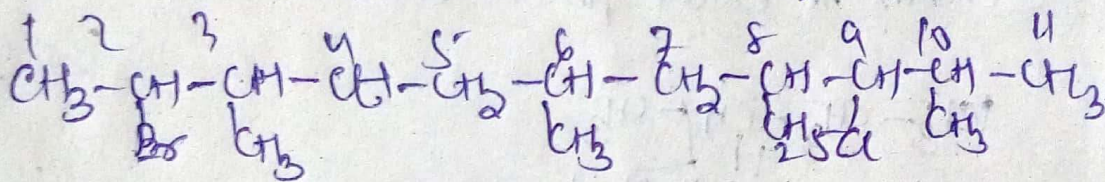 1 2 3 4 5 6 7 8 9 10 11
CH3-CH-CH-CH-CH2-CH-CH2-CH-CH-CH-CH3
Br CH3 CH3 CH25 Cl CH3